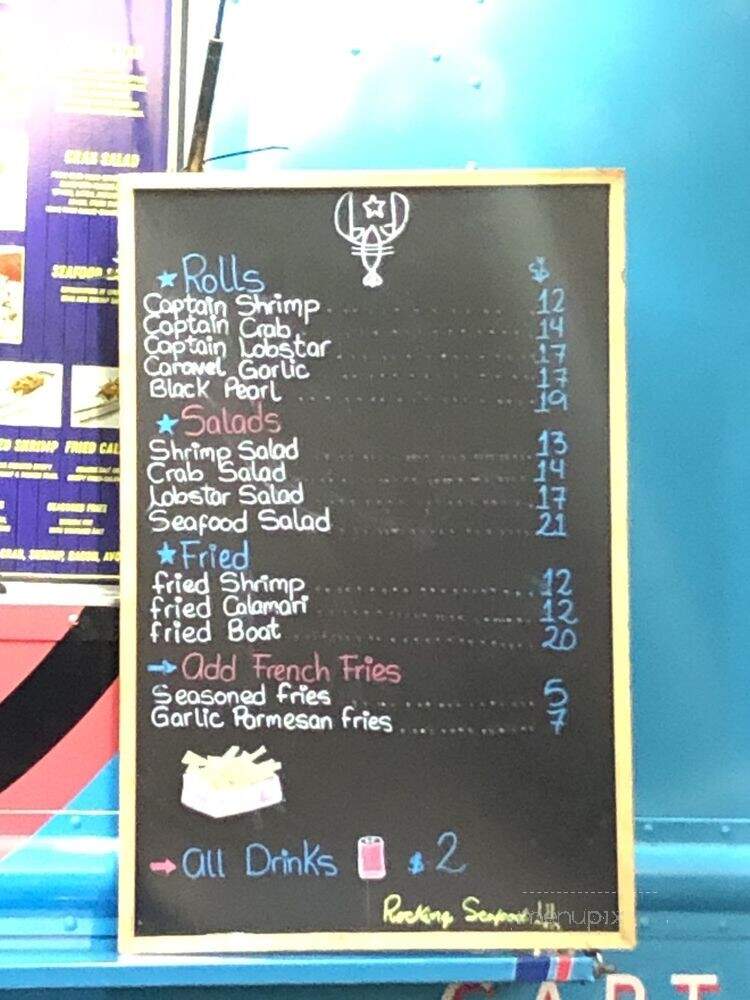 CRAB SALAD
SEAFOOD
FRIED CAL
SEASONED FRIES
$
★ Rolls
Captain Shrimp ............ 12
Captain Crab ............ 14
Captain Lobstar ............ 17
Caravel Garlic ............ 17
Black Pearl ............ 19
★ Salads
Shrimp Salad ............ 13
Crab Salad ............ 14
Lobstar Salad ............ 17
Seafood Salad ............ 21
★ Fried
fried Shrimp ............ 12
fried Calamari ............ 12
fried Boat ............ 20
→ Add French Fries
Seasoned fries ............ 5
Garlic Parmesan fries ............ 7
→ All Drinks $ 2
Rocking Seafood!!!
menupix